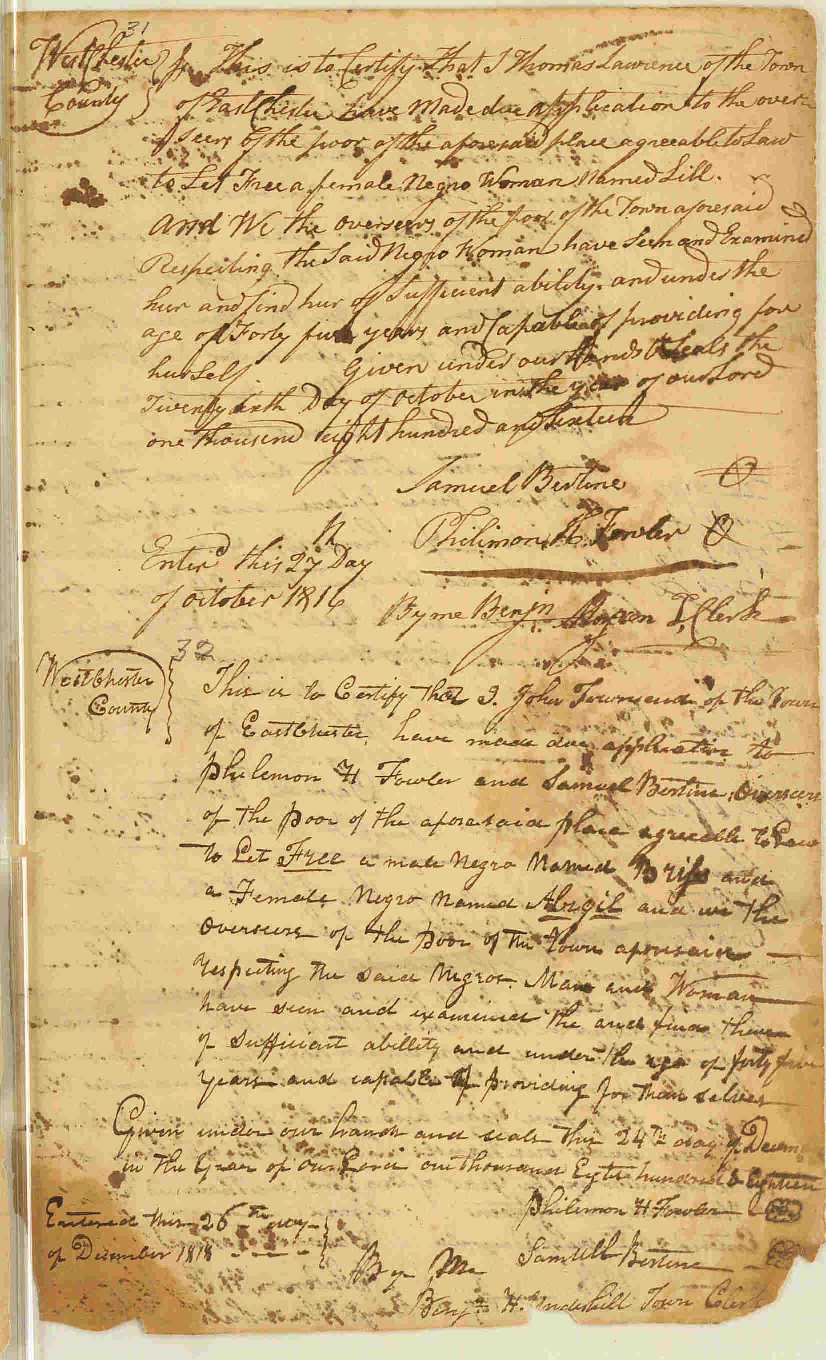 31
WestChester County } ss. This is to Certify that I Thomas Lawrence of the Town
of EastChester have Made due application to the over
seers of the poor of the aforesaid place agreeable to Law
to Let Free a female Negro Woman Named Lill.
And We the overseers of the poor of the Town aforesaid
Respecting the Said Negro Woman have Seen and Examined
hur and find hur of Sufficient ability. and under the
age of Forty five years and Capable of providing for
hurself Given under our Hands & Seals the
Twenty sixth Day of October in the year of our Lord
one thousand eight hundred and sixteen
Samuel Bertine
Philimon H. Fowler
Enterd this 27th Day
of October 1816
By me Benjn T, Clerk
32
WestChester
County
This is to Certify that I. John Townsend of the Town
of EastChester, have made due application to
Philemon H Fowler and Samuel Bertine, Overseers
of the Poor of the aforesaid place agreeable to Law
to Let Free a male Negro Named and
a Female Negro Named Abigil and we the
Overseers of the Poor of the Town aforesaid
respecting the said Negros. Man and Woman
have seen and examined the and find them
of Sufficient abillity and under the age of forty five
years and capable of providing for them selves
Given under our hands and seals this 24th day of Decem
in the Year of our Lord one thousand Eight hundred & Eighteen
Philemon H Fowler
Entered this 26th day
of December 1818
Samuell Bertine
By Me
Benjn H. Underhill Town Clerk